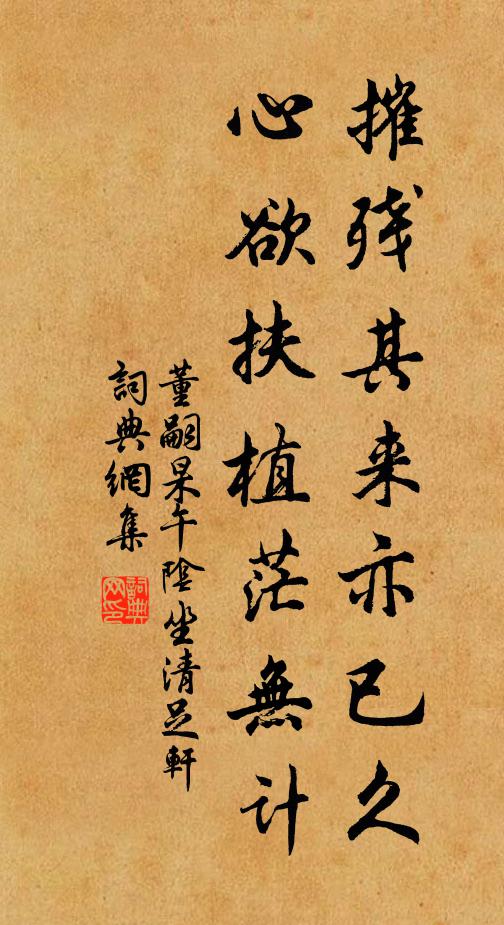 摧残其来亦已久
心欲扶植茫無计
董嗣杲午陰坐清足軒
詞典網集
詞典
网印